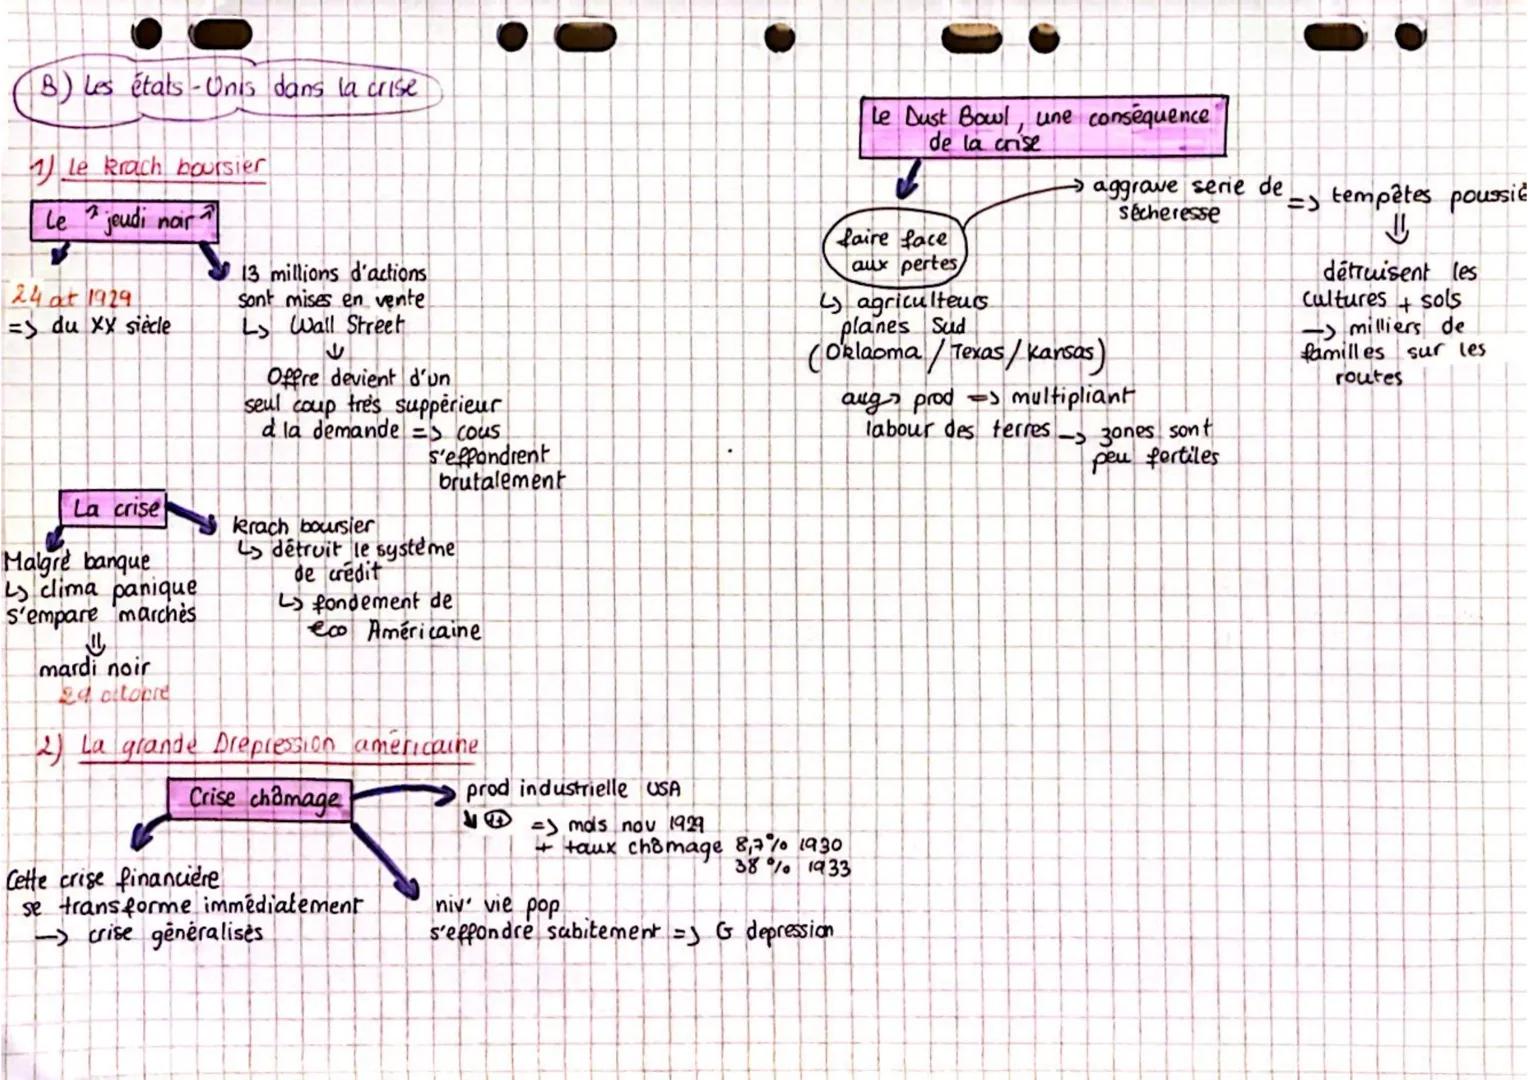 B) Les états-Unis dans la crise
1) Le krach boursier
Le "jeudi noir"
24 oct 1929
=> du XX siècle
13 millions d'actions
sont mises en vente
↳ Wall Street
↓
Offre devient d'un
seul coup très suppérieur
à la demande => cous
s'effondrent
brutalement
La crise
Malgré banque
↳ clima panique
s'empare marchès
⇓
mardi noir
29 octobre
krach boursier
↳ détruit le système
de crédit
↳ fondement de
éco Américaine
2) La grande Drepression américaine
Crise chômage
Cette crise financière
se transforme immédiatement
→ crise généralisés
prod industrielle USA
↘ ++ => mois nov 1929
+ taux chômage 8,7% 1930
38 % 1933
niv. vie pop
s'effondre subitement => G depression
Le Dust Bowl, une conséquence
de la crise
faire face
aux pertes
→ aggrave serie de
sécheresse
=> tempêtes poussiè
⇓
détruisent les
cultures + sols
→ milliers de
familles sur les
routes
↳ agriculteurs
planes Sud
(Oklaoma / Texas / Kansas)
aug→ prod => multipliant
labour des terres → zones sont
peu fertiles